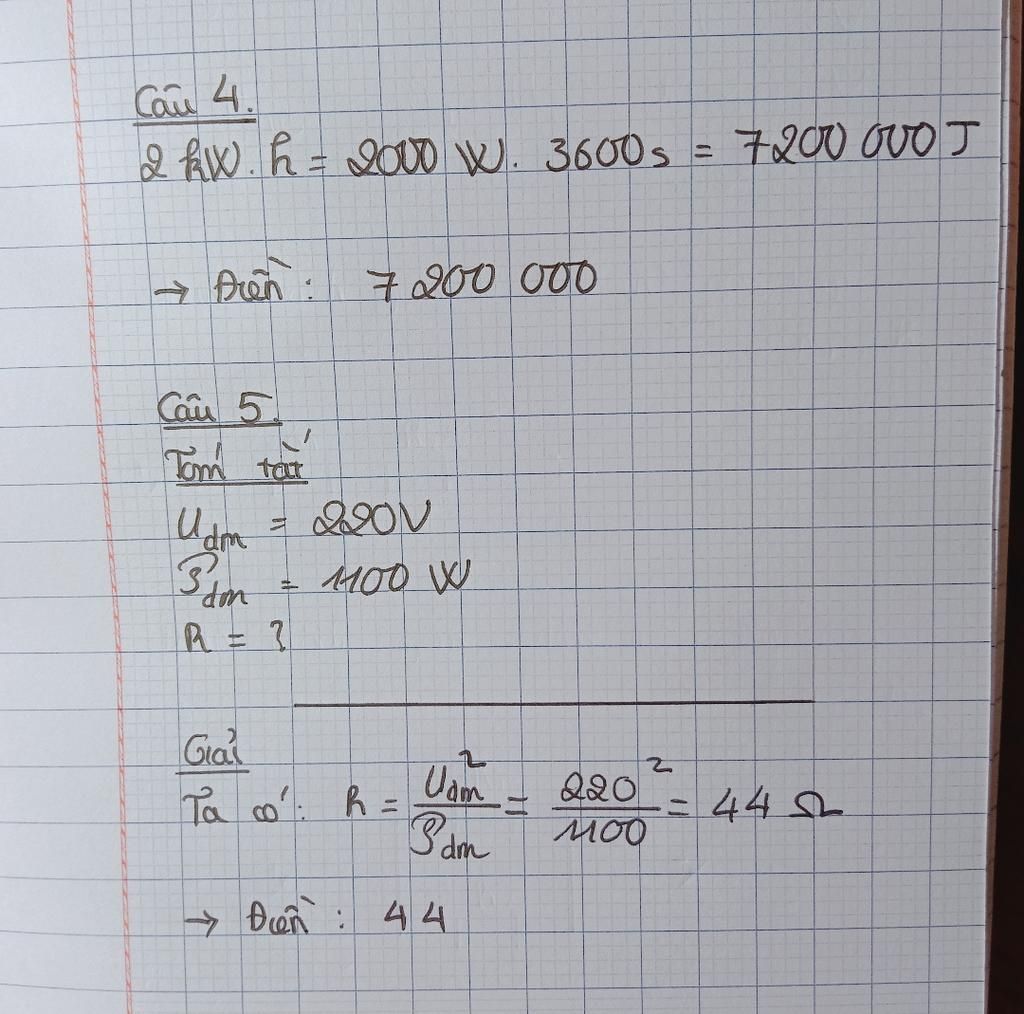 Câu 4.
2 kW. h = 2000 W. 3600s = 7200 000 J
→ Điền: 7 200 000
Câu 5.
Tóm tắt
Udm = 220V
𝒫dm = 1100 W
R = ?
Giải
Ta có: R = Udm² / 𝒫dm = 220² / 1100 = 44 Ω
→ Điền: 44